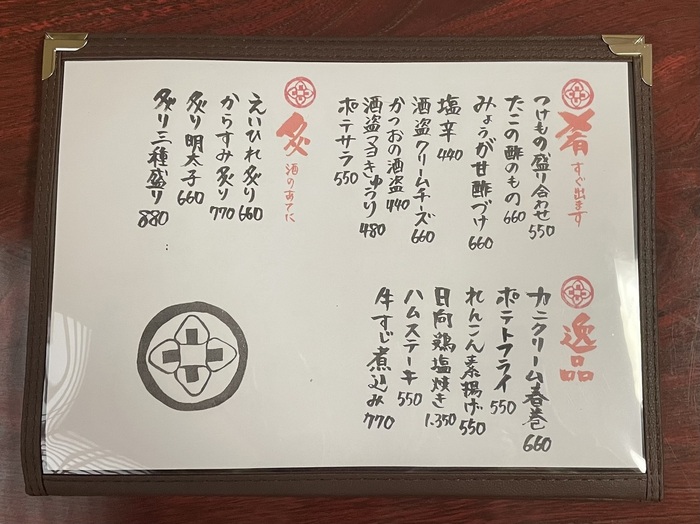 肴
すぐ出ます
つけもの盛り合わせ 550
たこの酢のもの 660
みょうが甘酢づけ 660
塩辛 440
酒盗クリームチーズ 660
かつおの酒盗 440
酒盗マヨきゅうり 480
ポテサラ 550
炙
酒のあてに
えいひれ炙り 660
からすみ炙り 770
炙り明太子 660
炙り三種盛り 880
逸品
カニクリーム春巻 660
ポテトフライ 550
れんこん素揚げ 550
日向鶏塩焼き 1.350
ハムステーキ 550
牛すじ煮込み 770